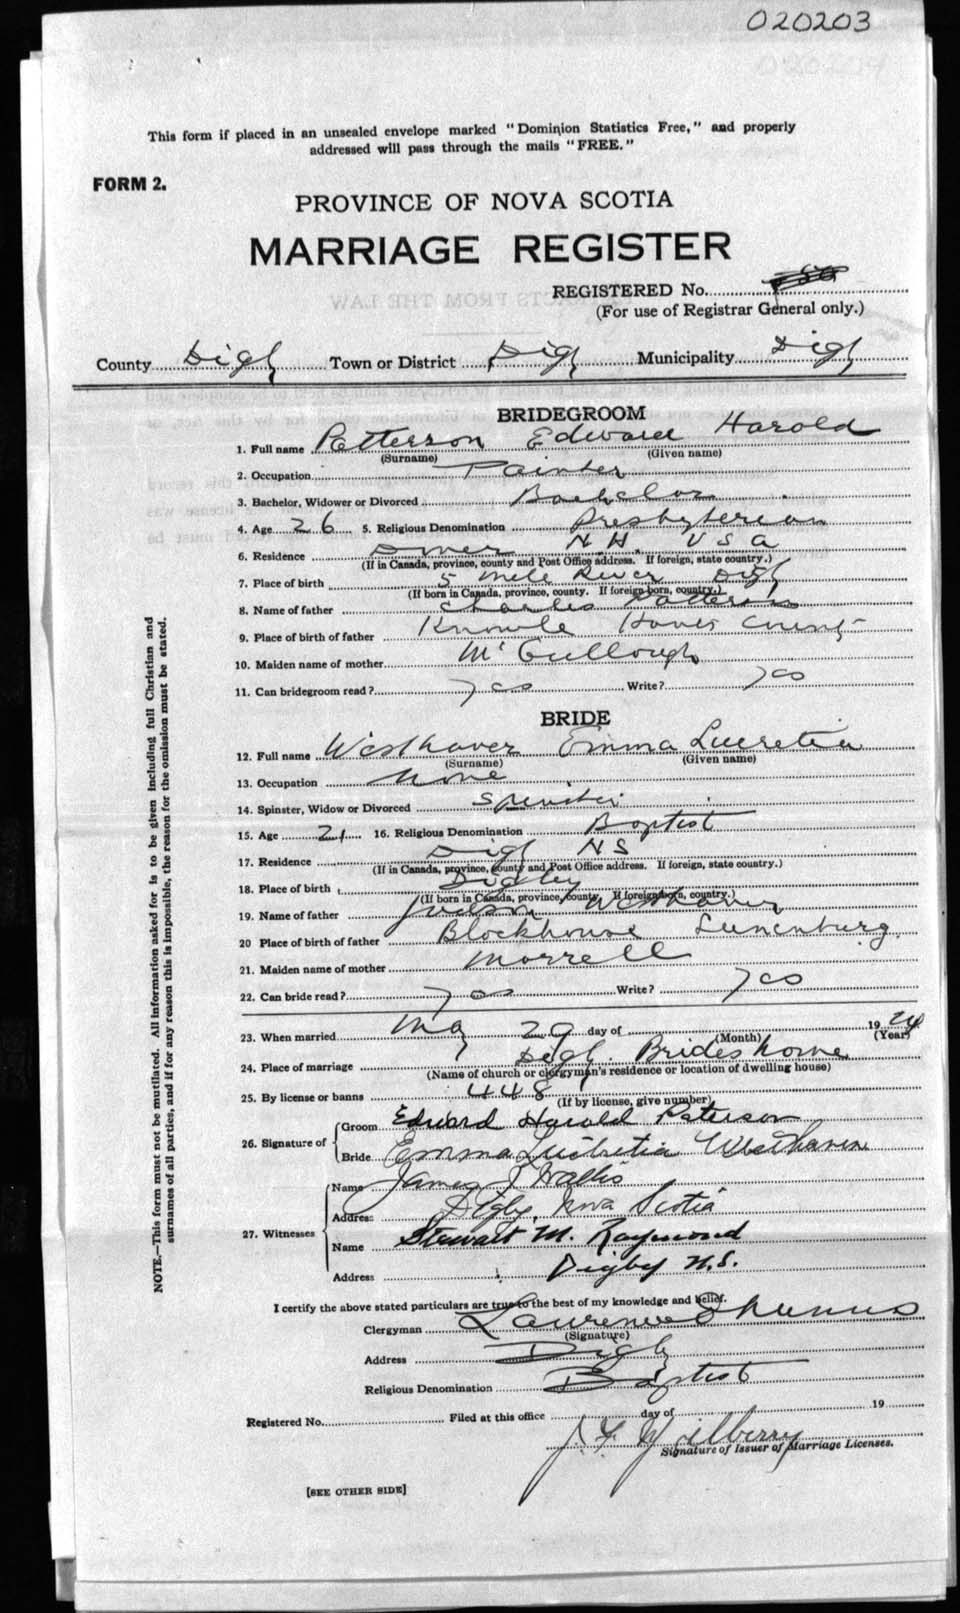 020203
This form if placed in an unsealed envelope marked "Dominion Statistics Free," and properly
addressed will pass through the mails "FREE."
FORM 2.
PROVINCE OF NOVA SCOTIA
MARRIAGE REGISTER
REGISTERED No.
(For use of Registrar General only.)
County Digby Town or District Digby Municipality Digby
BRIDEGROOM
1. Full name Patterson Edward Harold
(Surname) (Given name)
2. Occupation Painter
3. Bachelor, Widower or Divorced Bachelor
4. Age 26 5. Religious Denomination Presbyterian
6. Residence Dover N H. U S A
(If in Canada, province, county and Post Office address. If foreign, state country.)
7. Place of birth 5 Mile River Digby
(If born in Canada, province, county. If foreign born, country.)
8. Name of father Charles Patterson
9. Place of birth of father County
10. Maiden name of mother McCullough
11. Can bridegroom read? yes Write? yes
BRIDE
12. Full name Westhaver Emma Lucretia
(Surname) (Given name)
13. Occupation None
14. Spinster, Widow or Divorced Spinster
15. Age 21 16. Religious Denomination Baptist
17. Residence Digby N S
(If in Canada, province, county and Post Office address. If foreign, state country.)
18. Place of birth Digby
(If born in Canada, province, county. If foreign born, country.)
19. Name of father Judson Westhaver
20 Place of birth of father Blockhouse Lunenburg
21. Maiden name of mother Morrell
22. Can bride read? yes Write? yes
23. When married May 29 day of 1924
(Month) (Year)
24. Place of marriage Digby. Brides home
(Name of church or clergyman's residence or location of dwelling house)
25. By license or banns 448
(If by license, give number)
26. Signature of Groom Edward Harold Paterson
Bride Emma Lucretia Westhaver
27. Witnesses Name James J Wallis
Address Digby, Nova Scotia
Name Stewart M. Raymond
Address Digby N.S.
I certify the above stated particulars are true to the best of my knowledge and belief.
Clergyman Laurence
(Signature)
Address Digby
Religious Denomination Baptist
Registered No. Filed at this office day of 19
Signature of Issuer of Marriage Licenses.
[SEE OTHER SIDE]
NOTE.—This form must not be mutilated. All information asked for is to be given including full Christian and
surnames of all parties, and if for any reason this is impossible, the reason for the omission must be stated.